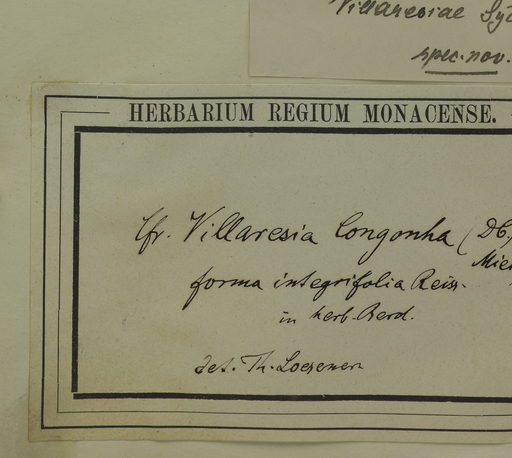 Villaresiae Sy
spec. nov.
HERBARIUM REGIUM MONACENSE.
Cfr. Villaresia Congonha (DC.)
Mier
forma integrifolia Reiss.
in herb. Berol.
det. Th. Loesener